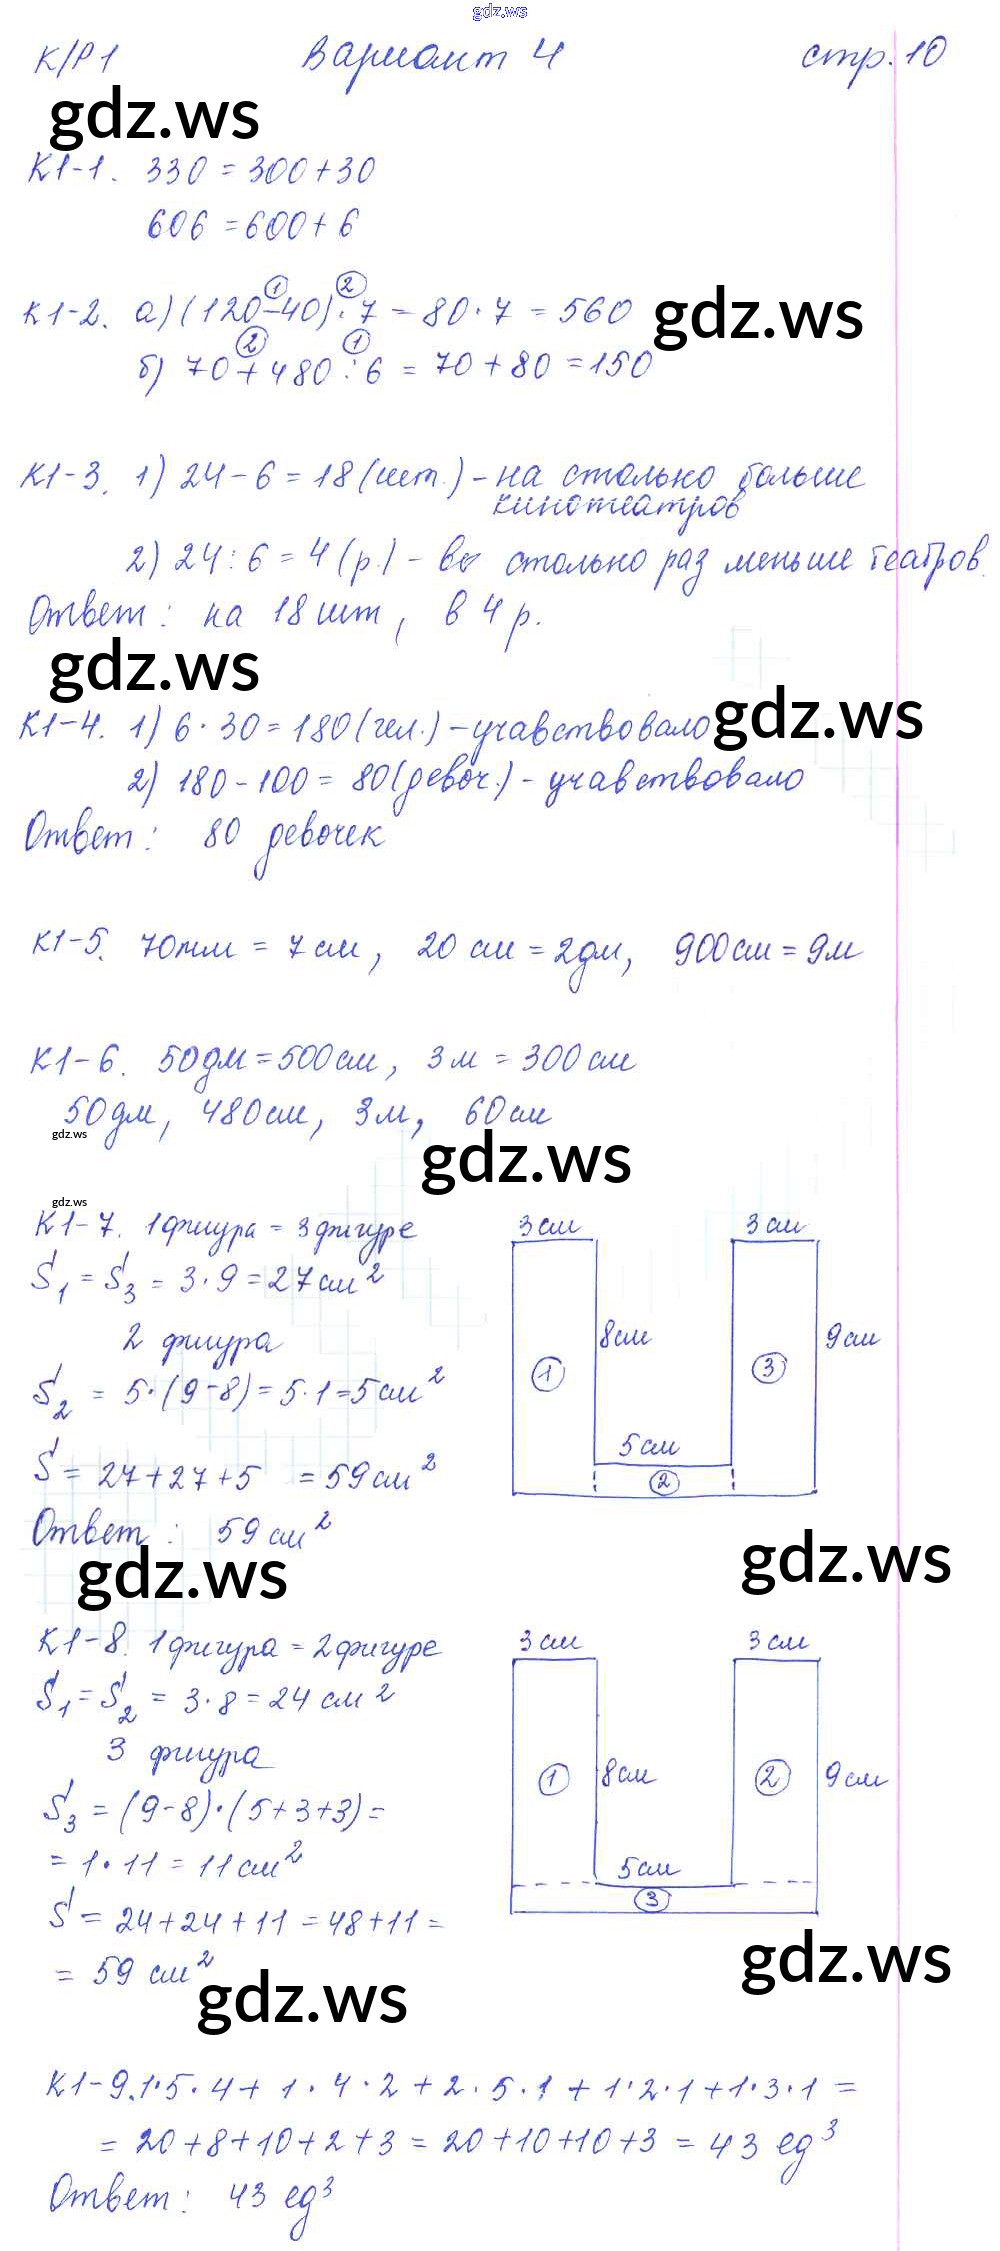 gdz.ws
К/Р1 Вариант 4 стр.10
gdz.ws
К1-1. 330 = 300+30
606 = 600+ 6
К1-2. а) (120-40)·7 = 80·7 = 560
1 2
gdz.ws
б) 70+480:6 = 70+80 = 150
2 1
К1-3. 1) 24-6 = 18 (шт.) - на столько больше
кинотеатров
2) 24:6 = 4 (р.) - во столько раз меньше театров.
Ответ: на 18 шт, в 4 р.
gdz.ws
К1-4. 1) 6·30 = 180 (чел.) - учавствовало
gdz.ws
2) 180-100 = 80 (девоч.) - учавствовало
Ответ: 80 девочек
К1-5. 70мм = 7 см, 20 см = 2дм, 900см = 9м
К1-6. 50дм = 500см, 3м = 300см
50дм, 480см, 3м, 60см
gdz.ws
gdz.ws
gdz.ws
К1-7. 1 фигура = 3 фигуре
S1 = S3 = 3·9 = 27 см²
2 фигура
S2 = 5·(9-8) = 5·1 = 5 см²
S = 27+27+5 = 59 см²
Ответ: 59 см²
3 см 3 см
8см 9 см
1 3
5 см
2
gdz.ws
gdz.ws
К1-8. 1 фигура = 2 фигуре
S1 = S2 = 3·8 = 24 см²
3 фигура
S3 = (9-8)·(5+3+3) =
= 1·11 = 11 см²
S = 24+24+11 = 48+11 =
= 59 см²
3 см 3 см
1 8см 2 9 см
5см
3
gdz.ws
gdz.ws
К1-9. 1·5·4+ 1·4·2+2·5·1+1·2·1+1·3·1 =
= 20+8+10+2+3 = 20+10+10+3 = 43 ед³
Ответ: 43 ед³